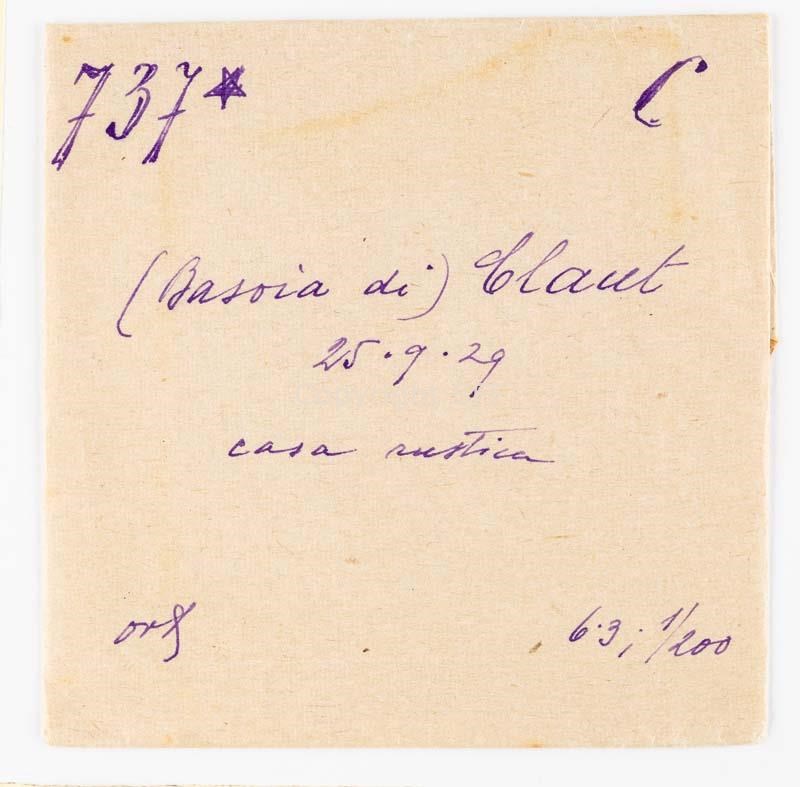 737* C
(Basoia di) Claut
25.9.29
casa rustica
6.3; 1/200